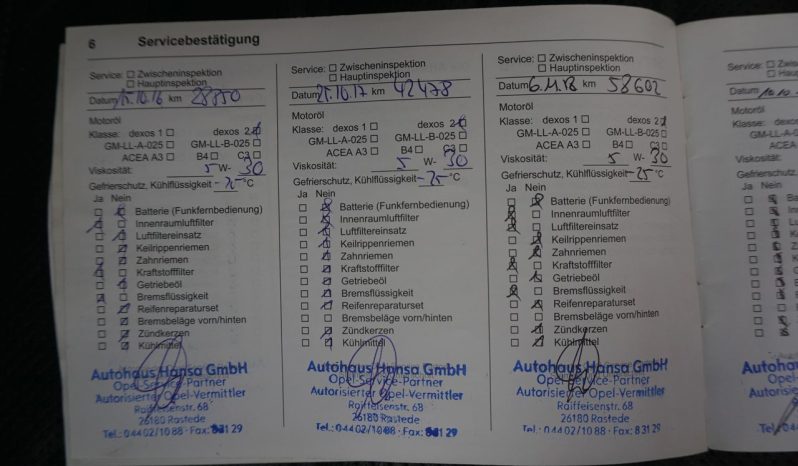 6 Servicebestätigung
Service: ☐ Zwischeninspektion
☐ Hauptinspektion
Datum .10.16 km 28850
Motoröl
Klasse: dexos 1 ☐ dexos 2 ☒
GM-LL-A-025 ☐ GM-LL-B-025 ☐
ACEA A3 ☐ B4 ☐ C3 ☐
Viskosität: 5 W- 30
Gefrierschutz, Kühlflüssigkeit -25 °C
Ja Nein
☐ ☒ Batterie (Funkfernbedienung)
☒ ☐ Innenraumluftfilter
☐ ☒ Luftfiltereinsatz
☐ ☒ Keilrippenriemen
☐ ☒ Zahnriemen
☒ ☐ Kraftstofffilter
☐ ☒ Getriebeöl
☒ ☐ Bremsflüssigkeit
☐ ☒ Reifenreparaturset
☐ ☒ Bremsbeläge vorn/hinten
☐ ☒ Zündkerzen
☐ ☒ Kühlmittel
Autohaus Hansa GmbH
Opel-Service-Partner
Autorisierter Opel-Vermittler
Raiffeisenstr. 68
26180 Rastede
Tel.: 04402/1088 · Fax: 83129
Service: ☐ Zwischeninspektion
☐ Hauptinspektion
Datum .10.17 km 42478
Motoröl
Klasse: dexos 1 ☐ dexos 2 ☒
GM-LL-A-025 ☐ GM-LL-B-025 ☐
ACEA A3 ☐ B4 ☐ C3 ☐
Viskosität: 5 W- 30
Gefrierschutz, Kühlflüssigkeit -25 °C
Ja Nein
☐ ☒ Batterie (Funkfernbedienung)
☐ ☒ Innenraumluftfilter
☐ ☒ Luftfiltereinsatz
☐ ☒ Keilrippenriemen
☐ ☒ Zahnriemen
☐ ☒ Kraftstofffilter
☐ ☒ Getriebeöl
☐ ☒ Bremsflüssigkeit
☐ ☒ Reifenreparaturset
☐ ☐ Bremsbeläge vorn/hinten
☐ ☒ Zündkerzen
☐ ☒ Kühlmittel
Autohaus Hansa GmbH
Opel-Service-Partner
Autorisierter Opel-Vermittler
Raiffeisenstr. 68
26180 Rastede
Tel.: 04402/1088 · Fax: 83129
Service: ☐ Zwischeninspektion
☐ Hauptinspektion
Datum 6.11.18 km 58602
Motoröl
Klasse: dexos 1 ☐ dexos 2 ☒
GM-LL-A-025 ☐ GM-LL-B-025 ☐
ACEA A3 ☐ B4 ☐ C3 ☐
Viskosität: 5 W- 30
Gefrierschutz, Kühlflüssigkeit -25 °C
Ja Nein
☐ ☒ Batterie (Funkfernbedienung)
☒ ☐ Innenraumluftfilter
☒ ☐ Luftfiltereinsatz
☐ ☒ Keilrippenriemen
☐ ☒ Zahnriemen
☒ ☐ Kraftstofffilter
☐ ☒ Getriebeöl
☒ ☐ Bremsflüssigkeit
☐ ☒ Reifenreparaturset
☐ ☐ Bremsbeläge vorn/hinten
☐ ☒ Zündkerzen
☐ ☒ Kühlmittel
Autohaus Hansa GmbH
Opel-Service-Partner
Autorisierter Opel-Vermittler
Raiffeisenstr. 68
26180 Rastede
Tel.: 04402/1088 · Fax: 83129
Service:
Datum
Motoröl
Klasse: dexos
GM-LL-A-0
ACEA A
Viskosität:
Gefrierschutz,
Ja Nein
Autoha
Op
Autorisie
Tel.: 044